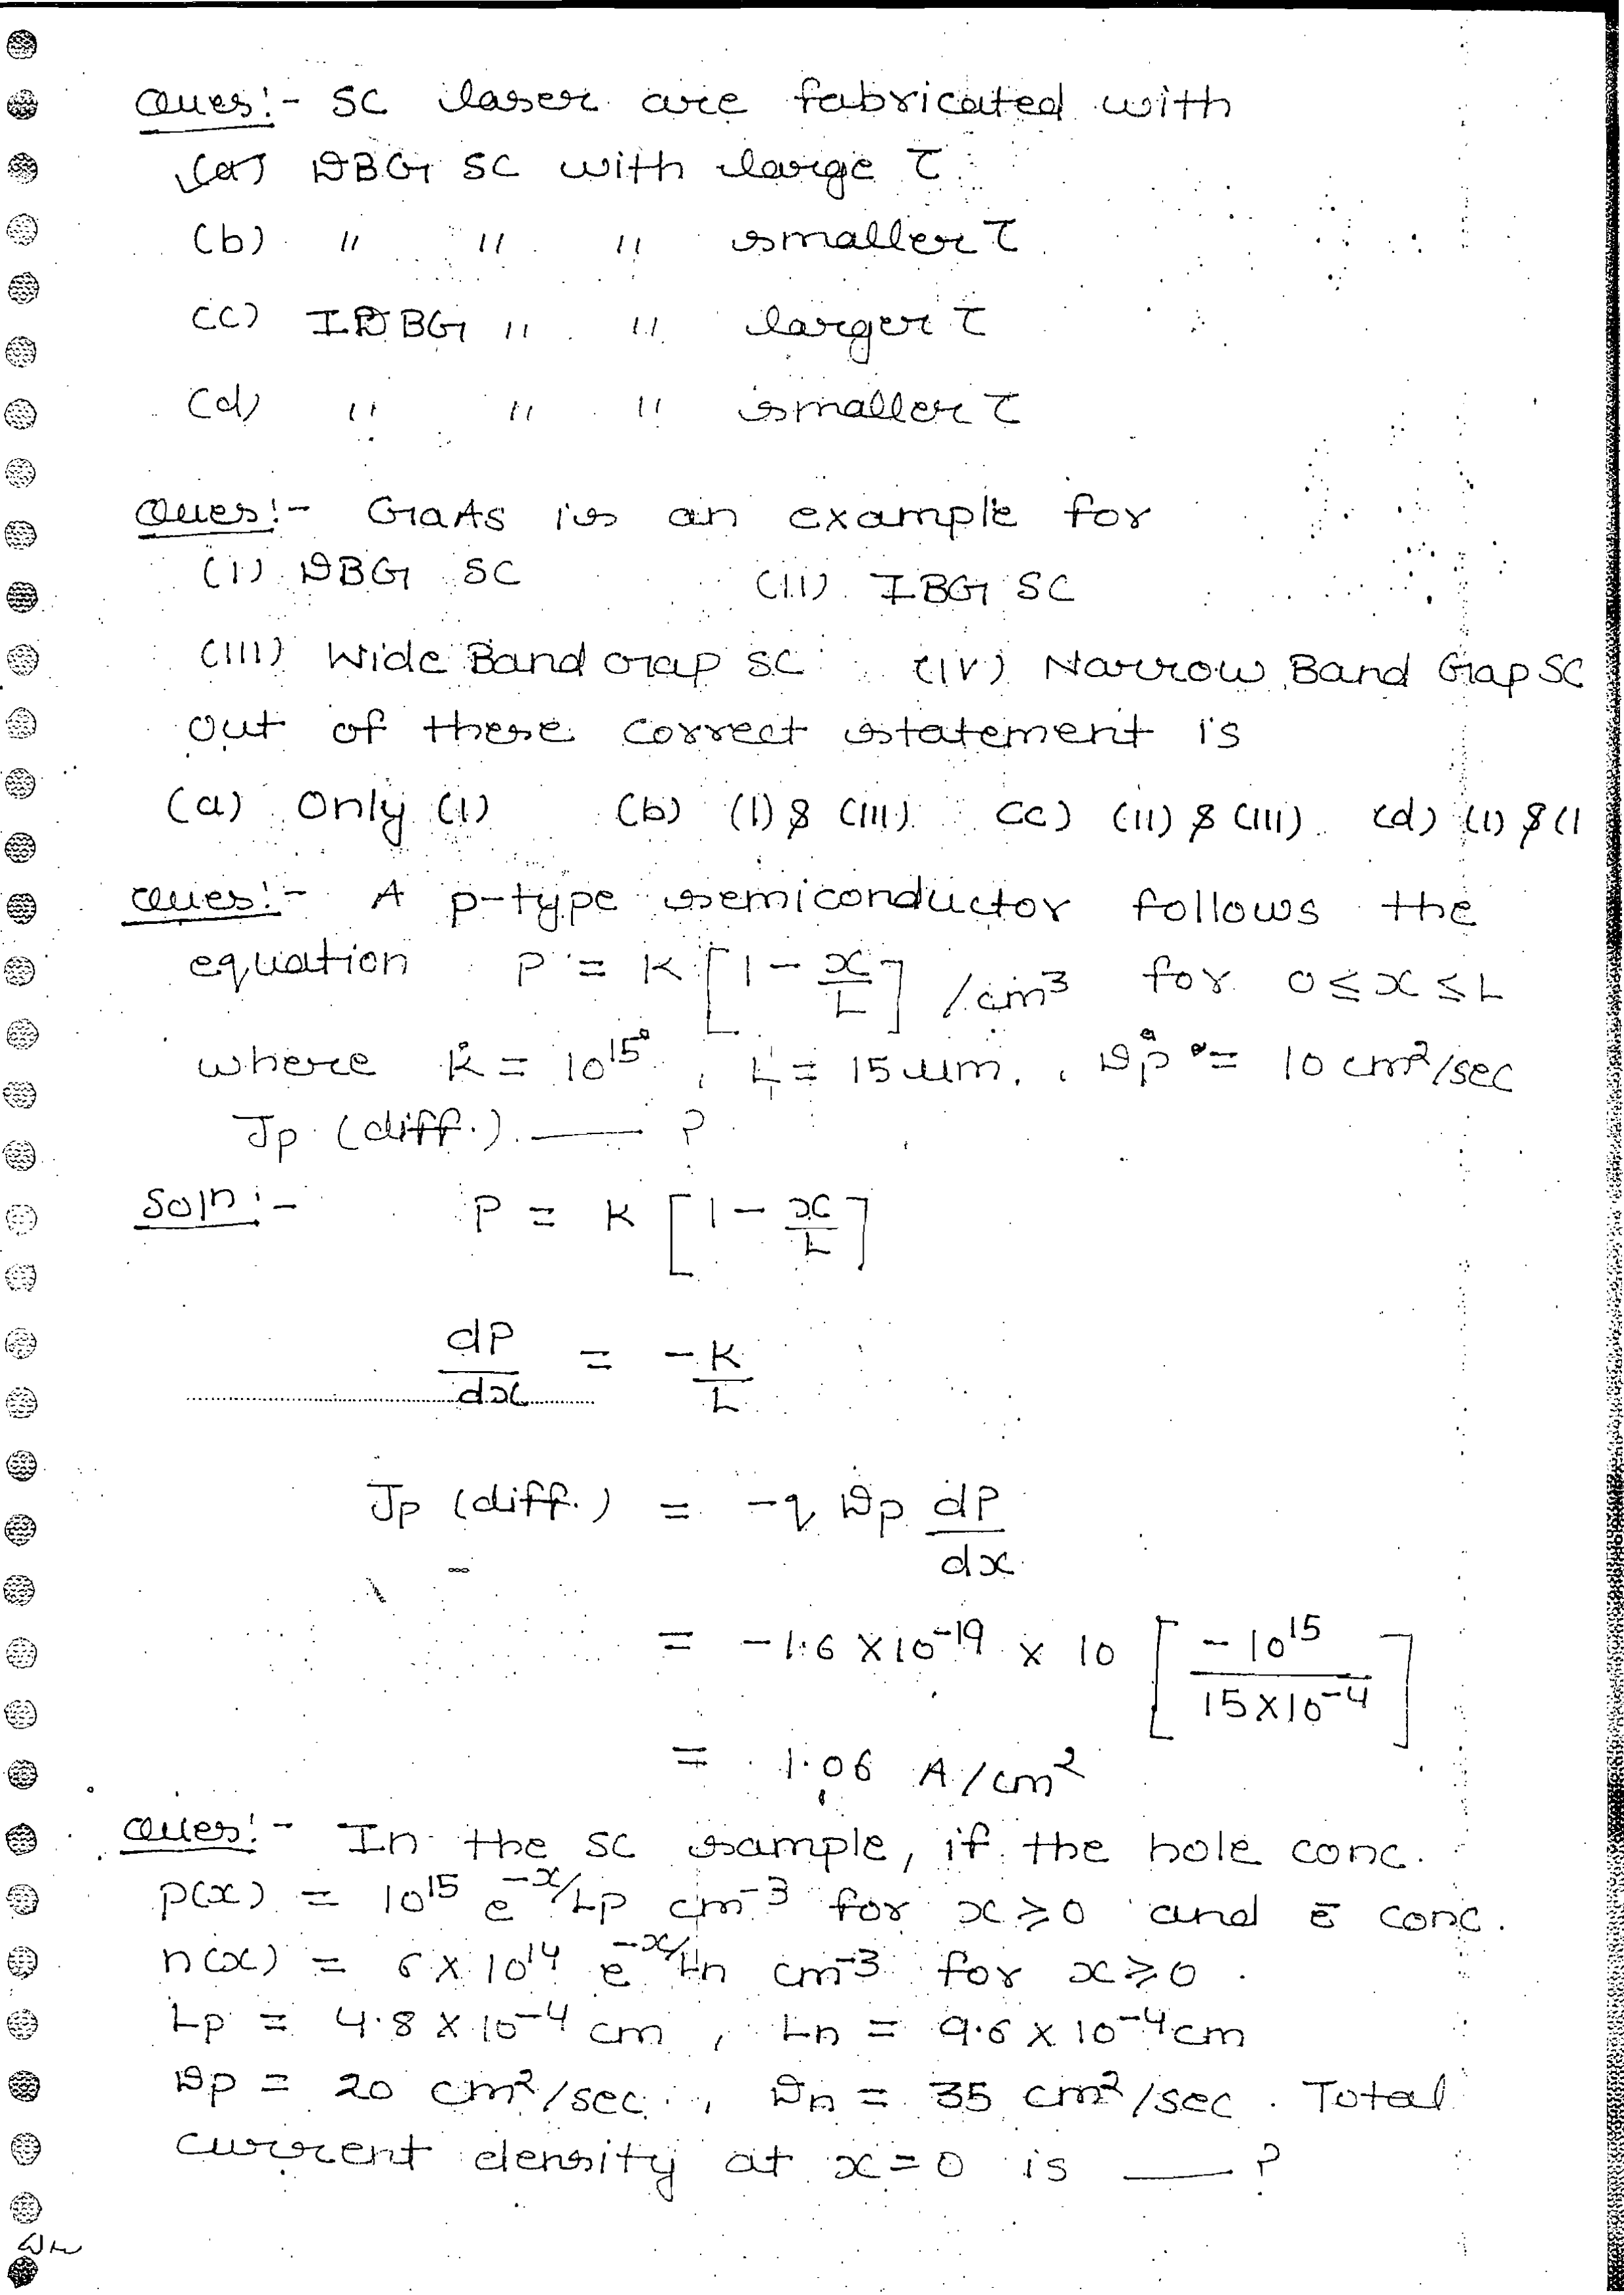 Ques:- SC laser are fabricated with
(a) DBG SC with large τ
(b) " " " smaller τ
(c) IDBG " " larger τ
(d) " " " smaller τ
Ques:- GaAs is an example for
(i) DBG SC (ii) IBG SC
(iii) Wide Band Gap SC (iv) Narrow Band Gap SC
out of these correct statement is
(a) Only (i) (b) (i) & (iii) (c) (ii) & (iii) (d) (i) & (i
Ques:- A p-type semiconductor follows the
equation P = K [1 - x/L] /cm³ for 0 ≤ x ≤ L
where K = 10¹⁵, L = 15 μm, Dp = 10 cm²/sec
Jp (diff.) —— ?
Soln:- P = K [1 - x/L]
dP/dx = -K/L
Jp (diff.) = -q Dp dP/dx
= -1.6 × 10⁻¹⁹ × 10 [-10¹⁵ / 15×10⁻⁴]
= 1.06 A/cm²
Ques:- In the SC sample, if the hole conc.
p(x) = 10¹⁵ e^(-x/Lp) cm⁻³ for x ≥ 0 and ē conc.
n(x) = 6 × 10¹⁴ e^(-x/Ln) cm⁻³ for x ≥ 0.
Lp = 4.8 × 10⁻⁴ cm, Ln = 9.6 × 10⁻⁴ cm
Dp = 20 cm²/sec., Dn = 35 cm²/sec. Total
current density at x = 0 is —— ?